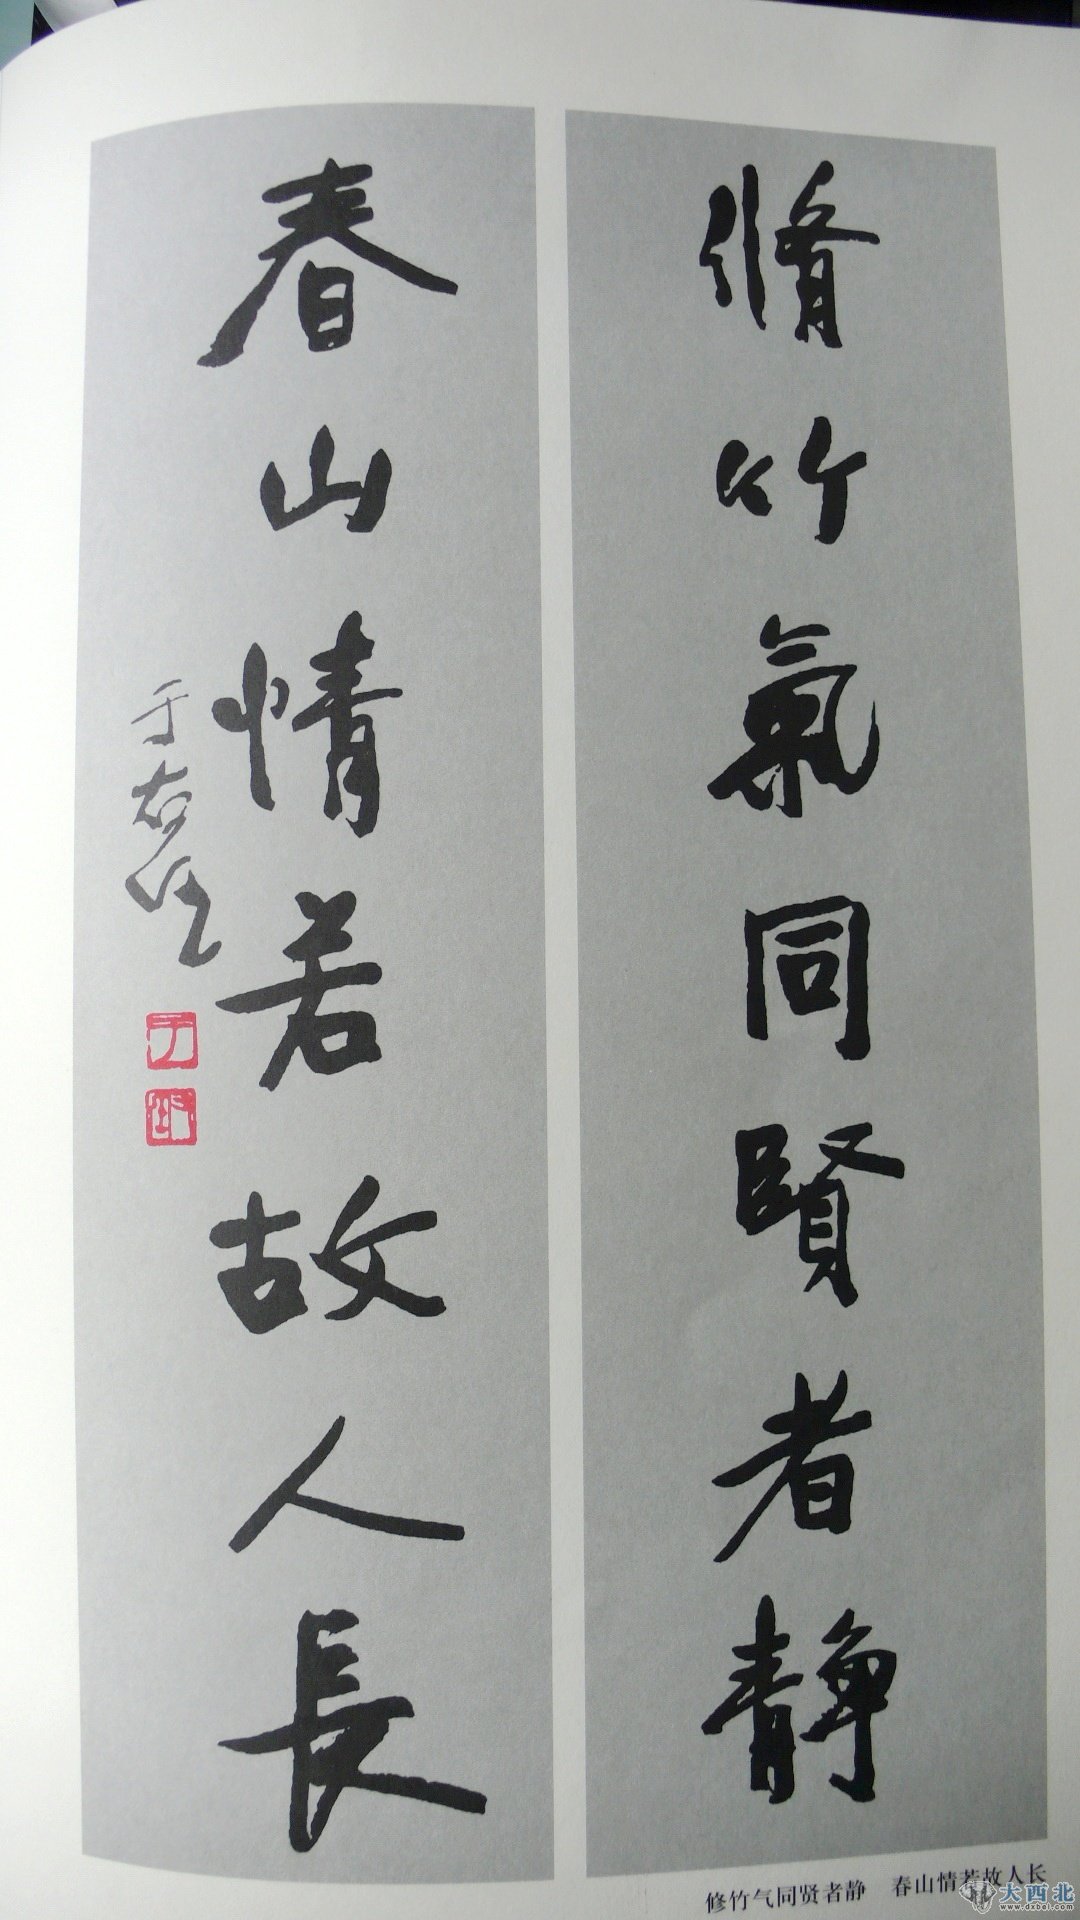 脩竹氣同賢者静
春山情若故人長
于右任
修竹气同贤者静 春山情若故人长
大西北
www.dxbei.com